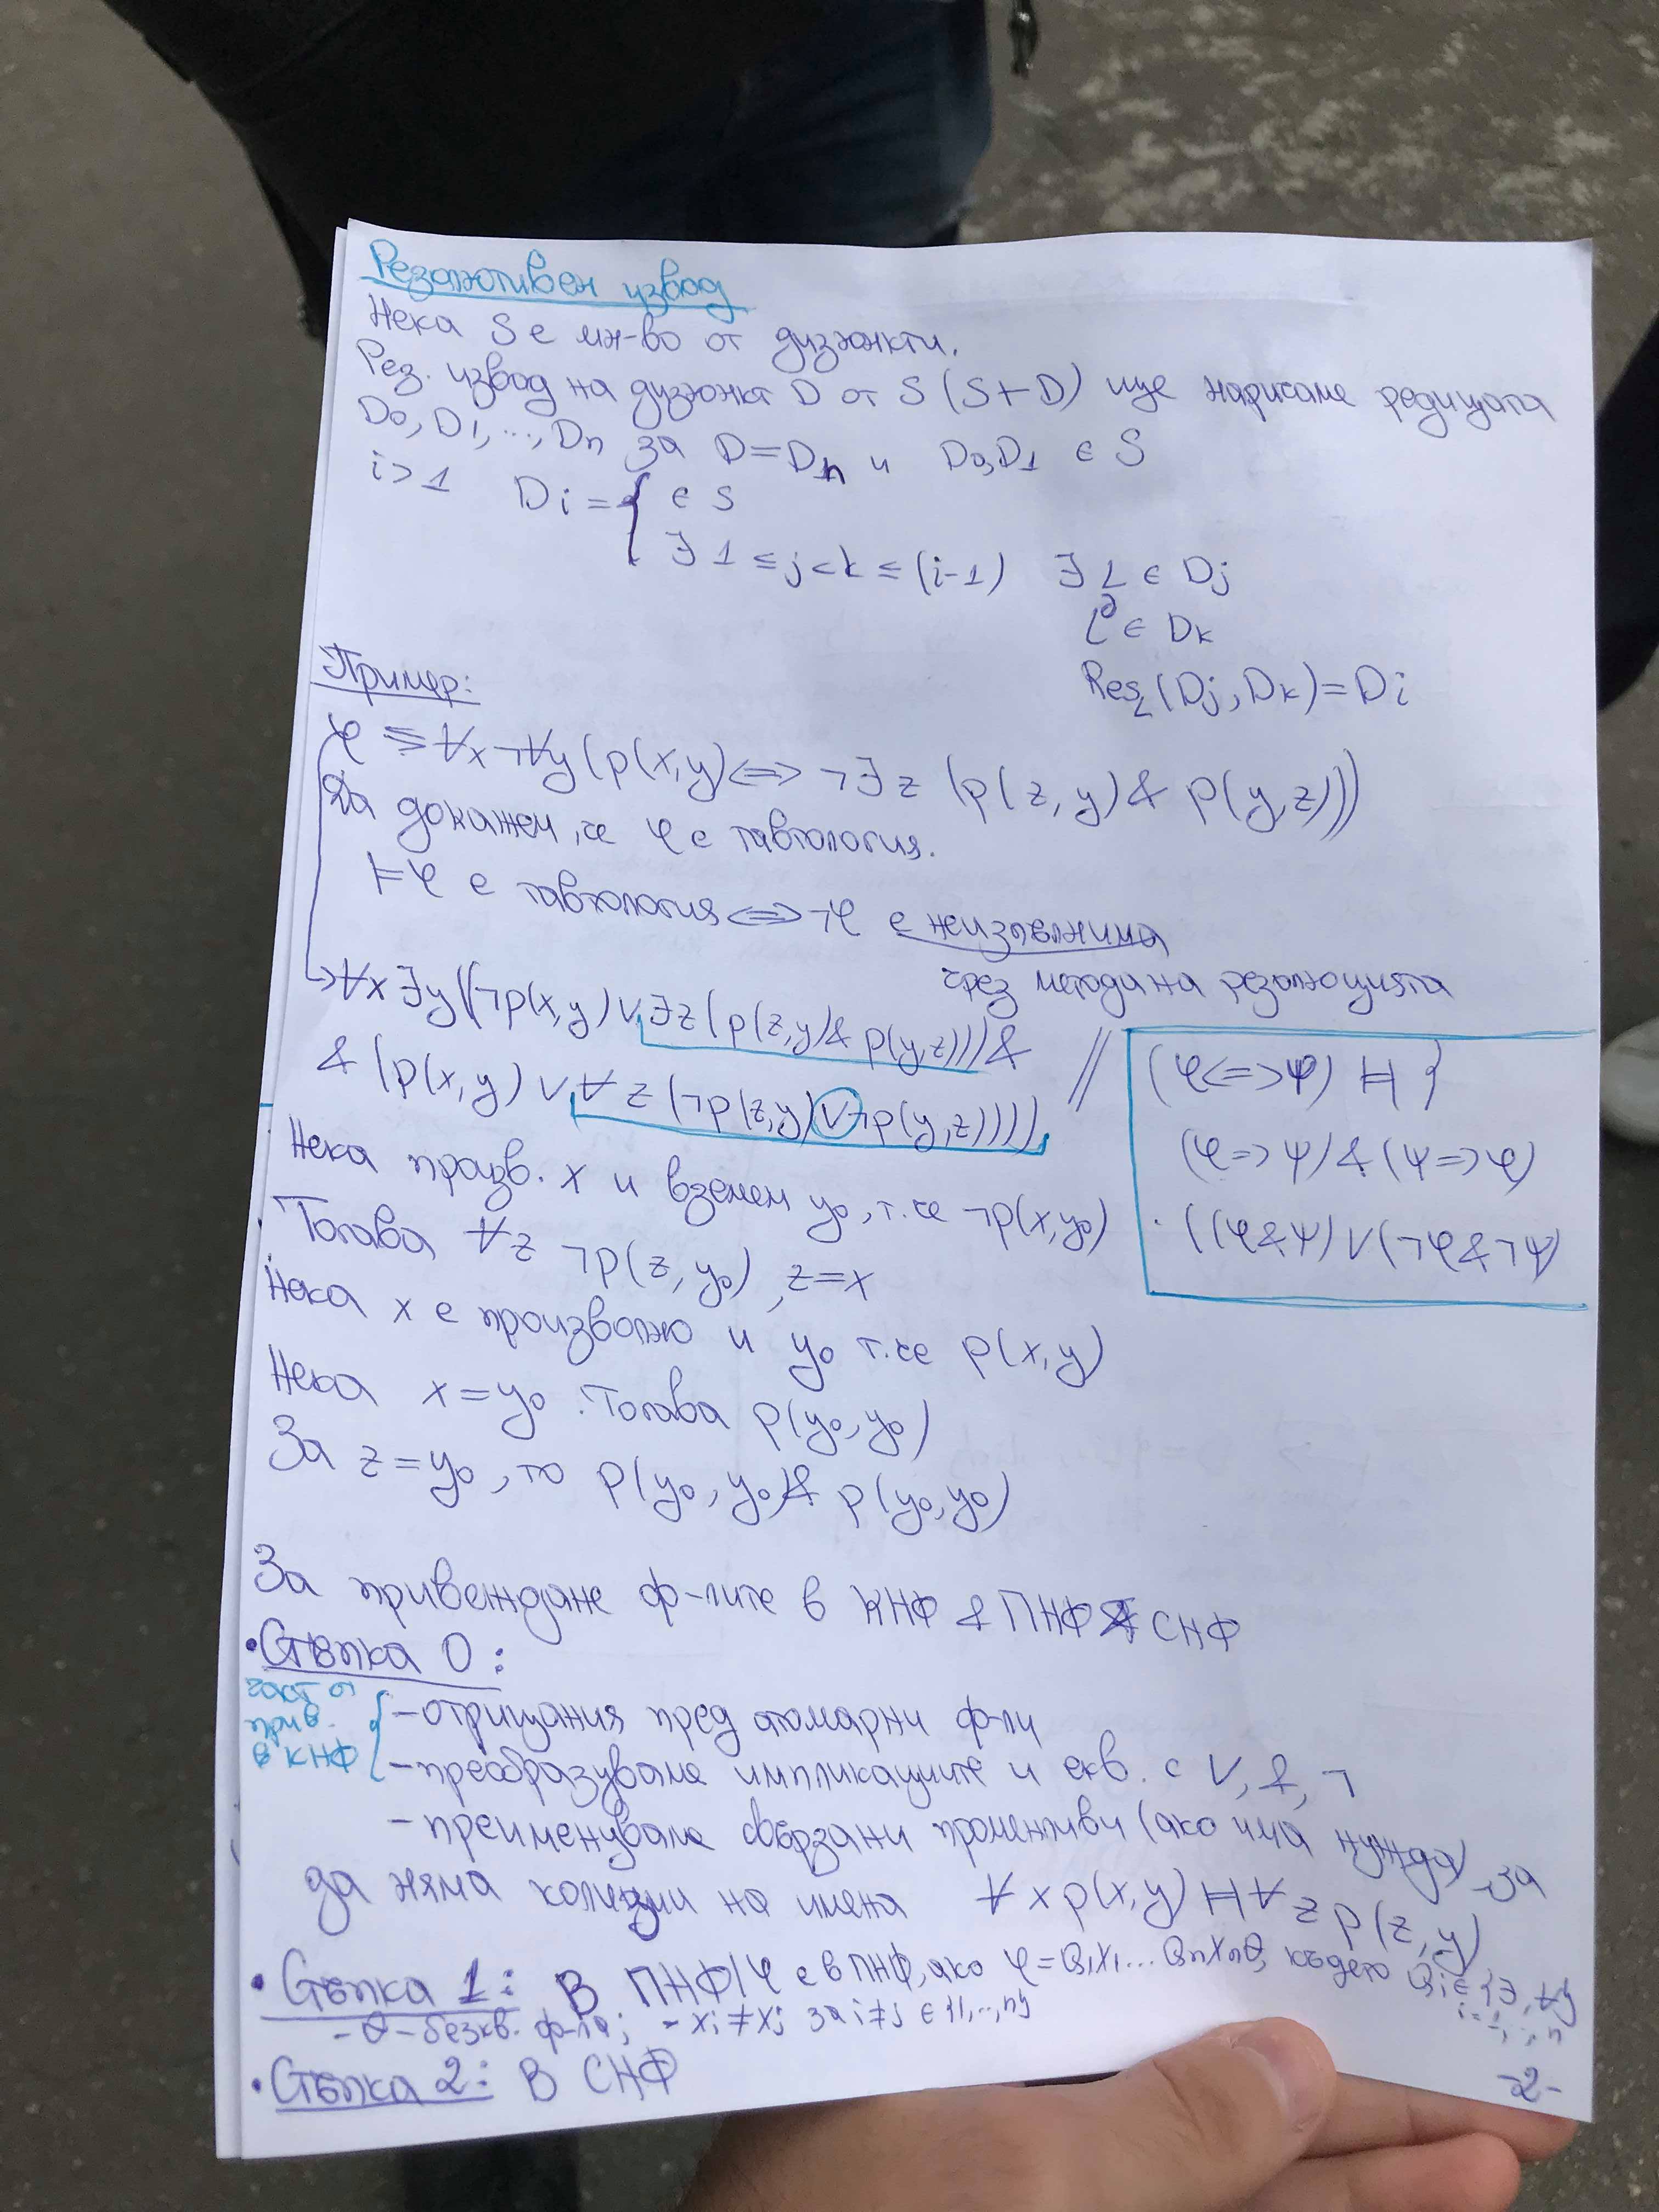 Резолютивен извод
Нека S е мн-во от дизюнкти.
Рез. извод на дизюнкт D от S (S ⊢ D) ще наричаме редицата
D0, D1, ..., Dn за D=Dn и D0,D1 ∈ S
i>1 Di = { ∈ S
∃ 1 ≤ j < k ≤ (i-1) ∃ L ∈ Dj
L^∂ ∈ Dk
Res_L (Dj, Dk) = Di
Пример:
φ ⇆ ∀x ¬∀y (p(x,y) <=> ¬∃z (p(z,y) & p(y,z)))
Да докажем, че φ е тавтология.
⊨φ е тавтология <=> ¬φ е неизпълнима
чрез метода на резолюцията
→ ∀x ∃y ((¬p(x,y) ∨ ∃z (p(z,y) & p(y,z))) &
& (p(x,y) ∨ ∀z (¬p(z,y) ∨ ¬p(y,z)))) //
(φ<=>ψ) ⊨⫤ }
(φ=>ψ) & (ψ=>φ)
((φ&ψ) ∨ (¬φ&¬ψ)
Нека произв. x и вземем y0, т.че ¬p(x,y0)
Тогава ∀z ¬p(z,y0), z=x
Нека x е произволно и y0 т.че p(x,y)
Нека x=y0. Тогава p(y0,y0)
За z=y0, то p(y0,y0) & p(y0,y0)
За привеждане ф-лите в КНФ & ПНФ & СНФ
• Стъпка 0:
част от
прив.
в КНФ
- отрицания пред атомарни ф-ли
- преобразуваме импликациите и екв. с ∨, &, ¬
- преименуваме свързани променливи (ако има нужда) за
да няма колизии на имена ∀x p(x,y) ⊨⫤ ∀z p(z,y)
• Стъпка 1: В ПНФ / φ е в ПНФ, ако φ=Q1x1...QnxnΘ, където Qi∈{∃,∀}
i=1,..,n
- Θ - безкв. ф-ла; - xi≠xj за i≠j ∈ {1,..,n}
• Стъпка 2: В СНФ
-2-